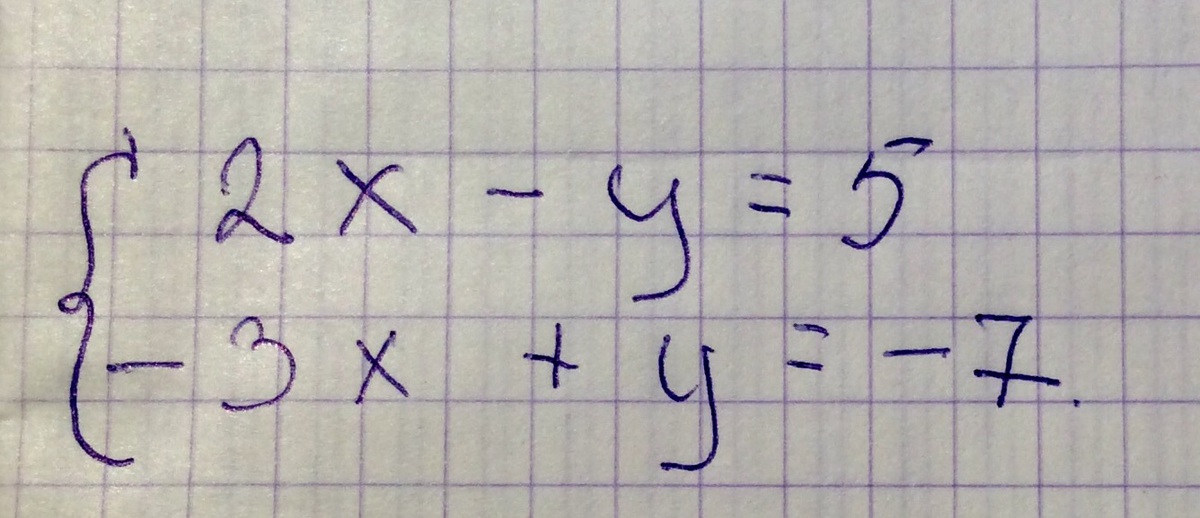 { 2x - y = 5
- 3x + y = - 7.